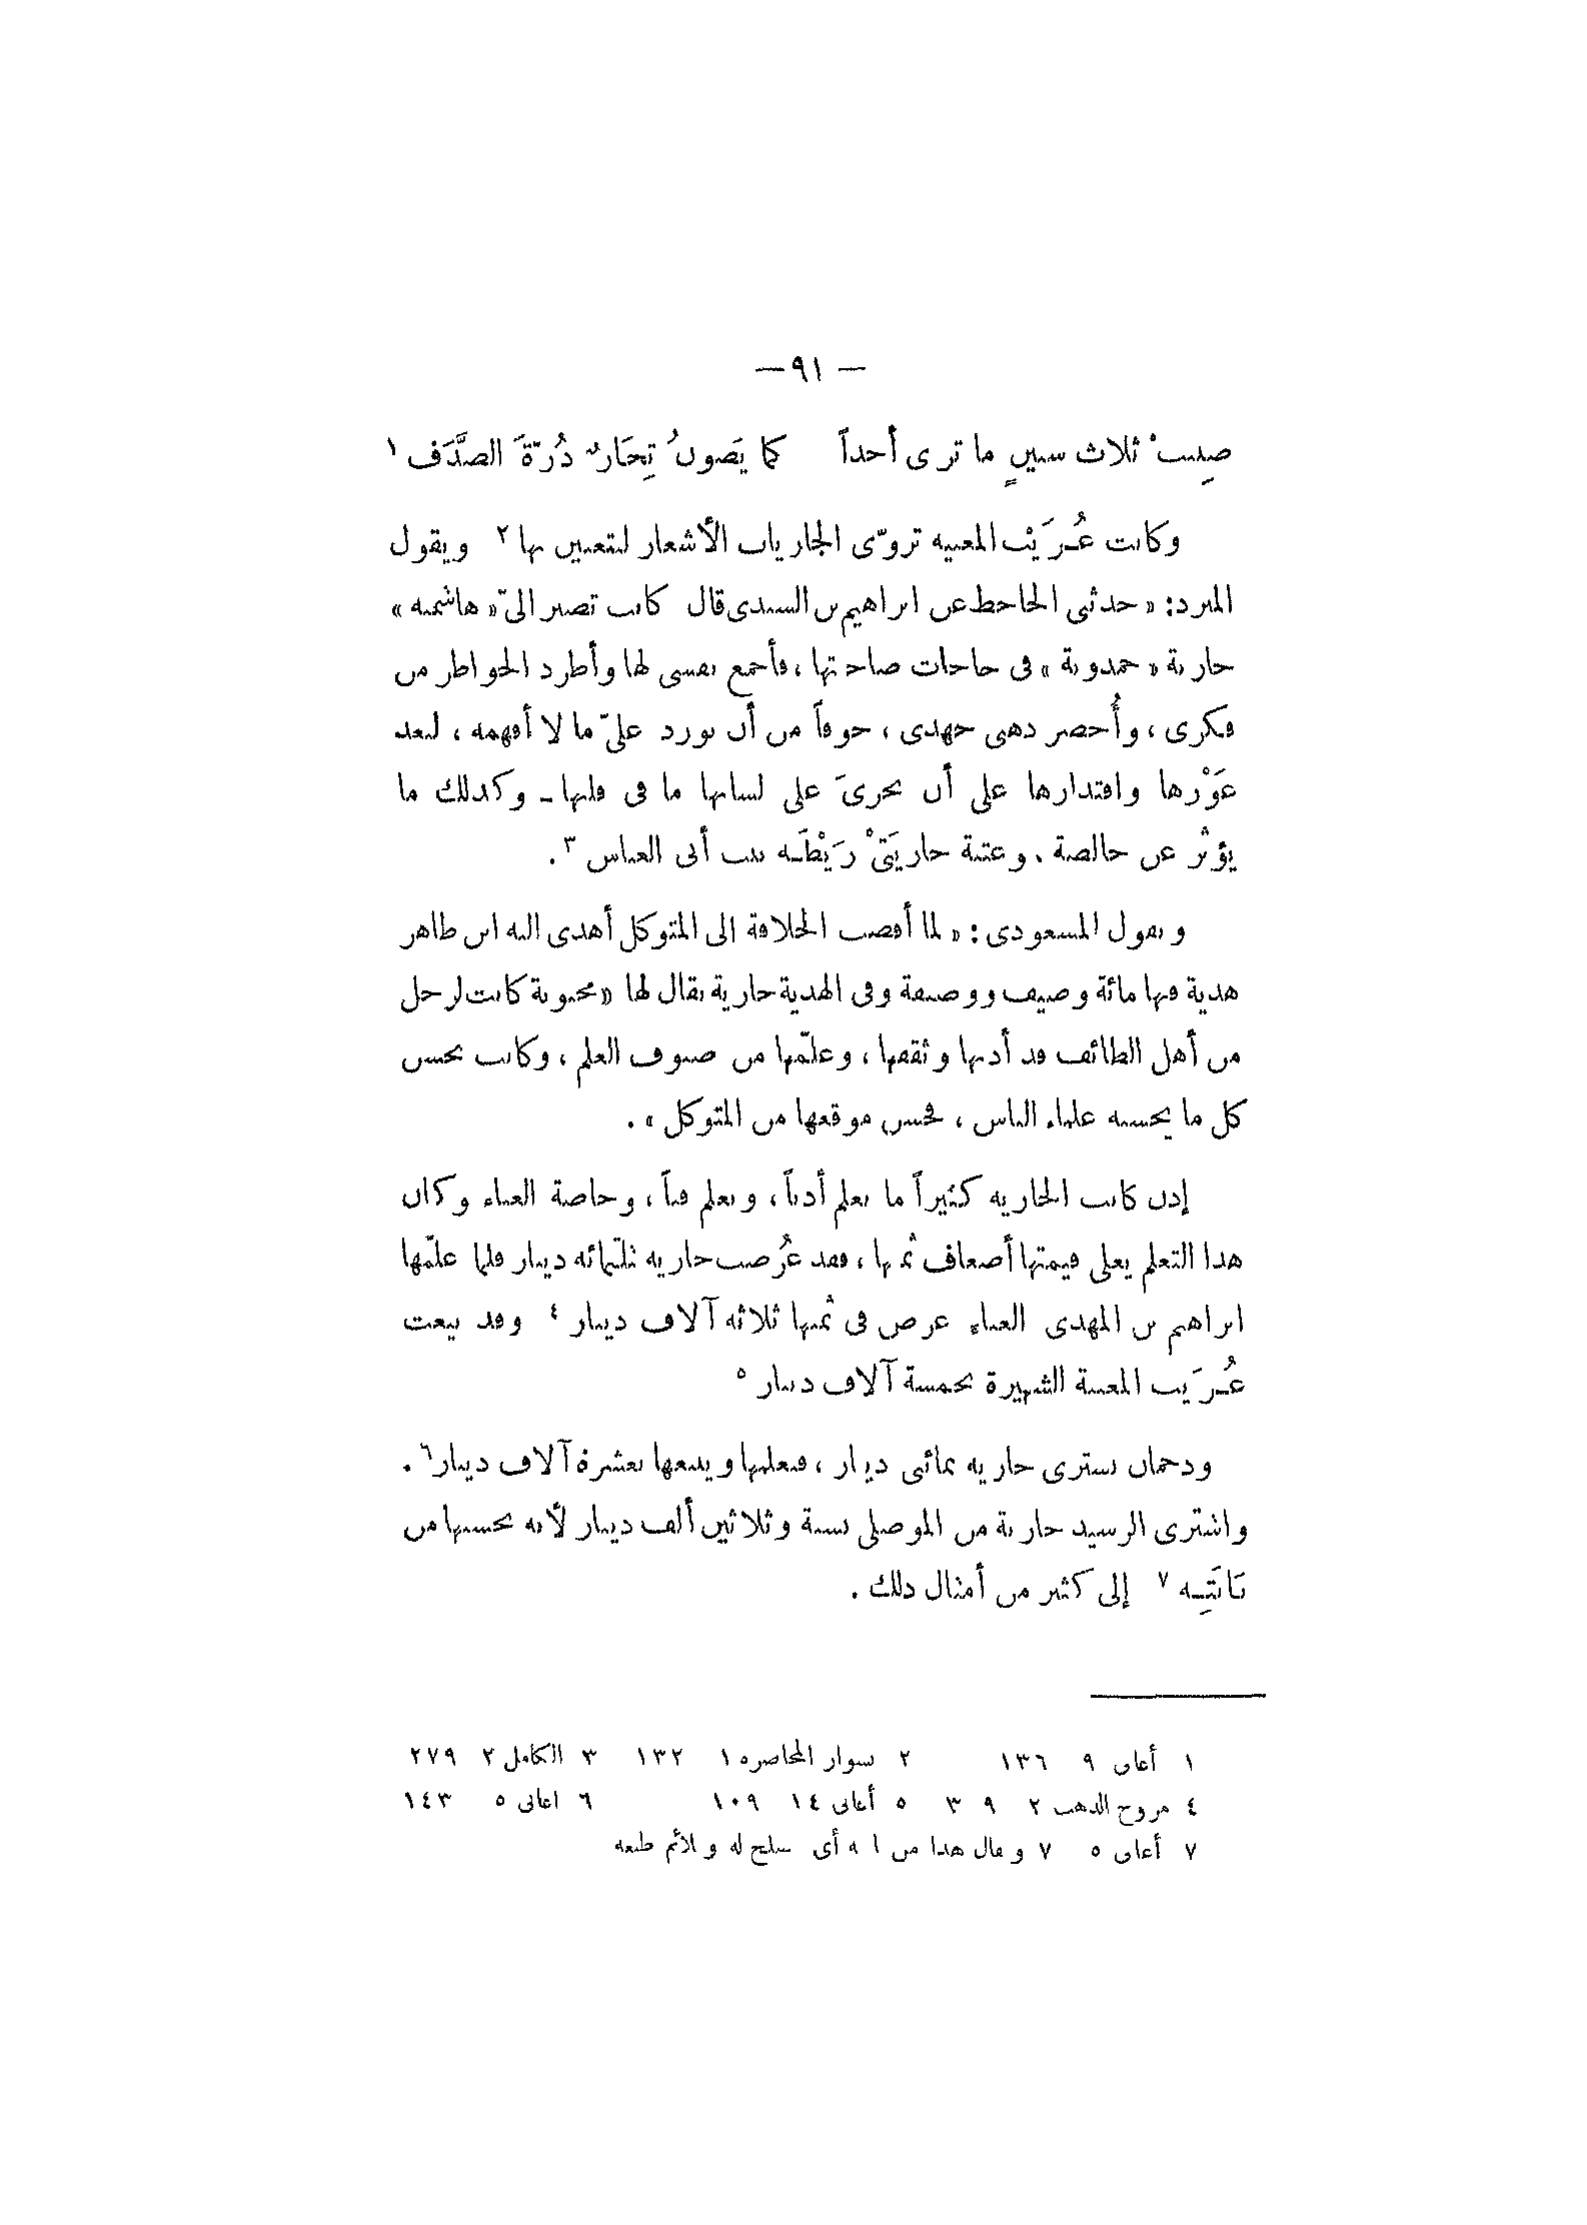 — ٩١ —
صِينتْ ثلاث سنينٍ ما ترى أحداً كما يَصونُ تِجَارٌ دُرّةَ الصدَّف ١
وكانت عُرَيْب المغنيه تروّى الجاريات الأشعار لتتغنين بها ٢ ويقول
المبرد: « حدثنى الجاحظ عن ابراهيم بن السندى قال كانت تصير الىّ « هاشمية »
جارية « حمدونة » فى حاجات صاحبتها ، فأجمع نفسى لها وأطرد الخواطر من
فكرى ، وأُحضر ذهنى جهدى ، خوفاً من أن تورد علىّ ما لا أفهمه ، لبعد
غَوْرها واقتدارها على أن تجرىَ على لسانها ما فى قلبها - وكذلك ما
يؤثر عن خالصة . وعتبة جاريَتَىْ رَيْطَـه بنت أبى العباس ٣ .
ويقول المسعودى : « لما أفضت الخلافة الى المتوكل أهدى اليه ابن طاهر
هدية فيها مائة وصيف ووصيفة وفى الهدية جارية يقال لها « محبوبة كانت لرجل
من أهل الطائف قد أدبها وثقفها ، وعلّمها من صنوف العلم ، وكانت تحسن
كل ما يحسنه علماء الناس ، فحسن موقعها من المتوكل » .
إذن كانت الجاريه كثيراً ما تعلم أدباً ، وتعلم فناً ، وخاصة الغناء وكان
هذا التعلم يغلى قيمتها أضعاف ثمنها ، فقد عُرضت جاريه بثلثمائه دينار فلما علّمها
ابراهيم بن المهدى الغناء عرض فى ثمنها ثلاثه آلاف دينار ٤ وقد بيعت
عُرَيب المغنية الشهيرة بخمسة آلاف دينار ٥
ودحمان يشترى جاريه بمائتى دينار ، فيعلمها ويبيعها بعشرة آلاف دينار ٦ .
واشترى الرشيد جارية من الموصلى بستة وثلاثين ألف دينار لأنه يحسبها من
بَابَتِـه ٧ إلى كثير من أمثال ذلك .
١ أغانى ٩ ١٣٦ ٢ نشوار المحاضره ١ ١٣٢ ٣ الكامل ٢ ٢٧٩
٤ مروج الذهب ٢ ٣٠٩ ٥ أغانى ١٤ ١٠٩ ٦ اغانى ٥ ١٤٣
٧ أغانى ٥ ٧ ويقال هذا من بابته أى يصلح له ويلائم طبعه